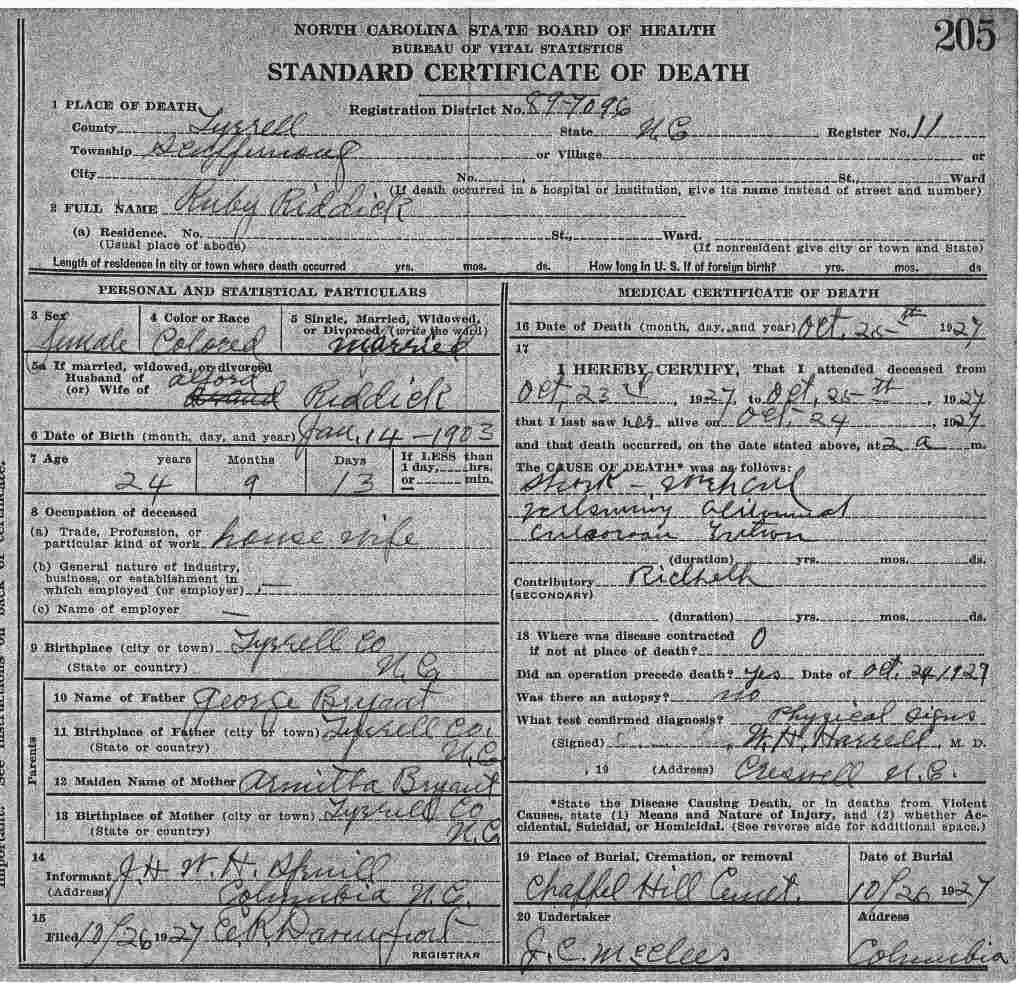 205
NORTH CAROLINA STATE BOARD OF HEALTH
BUREAU OF VITAL STATISTICS
STANDARD CERTIFICATE OF DEATH
1 PLACE OF DEATH Registration District No. 89-7096
County Tyrrell State N.C Register No. 11
Township Scuppernong or Village or
City No. , St., Ward
(If death occurred in a hospital or institution, give its name instead of street and number)
2 FULL NAME Ruby Riddick
(a) Residence. No. St., Ward.
(Usual place of abode) (If nonresident give city or town and State)
Length of residence in city or town where death occurred yrs. mos. ds. How long in U. S. if of foreign birth? yrs. mos. ds
PERSONAL AND STATISTICAL PARTICULARS
3 Sex 4 Color or Race 5 Single, Married, Widowed,
or Divorced (write the word)
female Colored married
5a If married, widowed, or divorced
Husband of Alford
(or) Wife of Riddick
6 Date of Birth (month, day, and year) Jan. 14 - 1903
7 Age years Months Days If LESS than
1 day, hrs.
or min.
24 9 13
8 Occupation of deceased
(a) Trade, Profession, or
particular kind of work house wife
(b) General nature of industry,
business, or establishment in
which employed (or employer) —
(c) Name of employer —
9 Birthplace (city or town) Tyrrell Co
(State or country) N.C.
Parents
10 Name of Father George Bryant
11 Birthplace of Father (city or town) Tyrrell Co.
(State or country) N.C.
12 Maiden Name of Mother Armitta Bryant
13 Birthplace of Mother (city or town) Tyrrell Co
(State or country) N.C.
14
Informant J.H. W. H. Spruill
(Address) Columbia N.C.
15
Filed 10/26 1927 C.R. Davenport
REGISTRAR
MEDICAL CERTIFICATE OF DEATH
16 Date of Death (month, day, and year) Oct. 25-th 1927
17
I HEREBY CERTIFY, That I attended deceased from
Oct, 23 , 1927, to Oct, 25-th , 1927
that I last saw her alive on Oct, 24 , 1927
and that death occurred, on the date stated above, at 2 a m.
The CAUSE OF DEATH* was as follows:
Shock -
(duration) yrs. mos. ds.
Contributory
(SECONDARY)
(duration) yrs. mos. ds.
18 Where was disease contracted
if not at place of death? 0
Did an operation precede death? yes Date of Oct. 24, 1927
Was there an autopsy? no
What test confirmed diagnosis? Physical signs
(Signed) W. H. Harrell, M. D.
, 19 (Address) Creswell N.C.
*State the Disease Causing Death, or in deaths from Violent
Causes, state (1) Means and Nature of Injury, and (2) whether Ac-
cidental, Suicidal, or Homicidal. (See reverse side for additional space.)
19 Place of Burial, Cremation, or removal Date of Burial
Chappel Hill Cemet. 10/26 1927
20 Undertaker Address
J. C. McClees Columbia